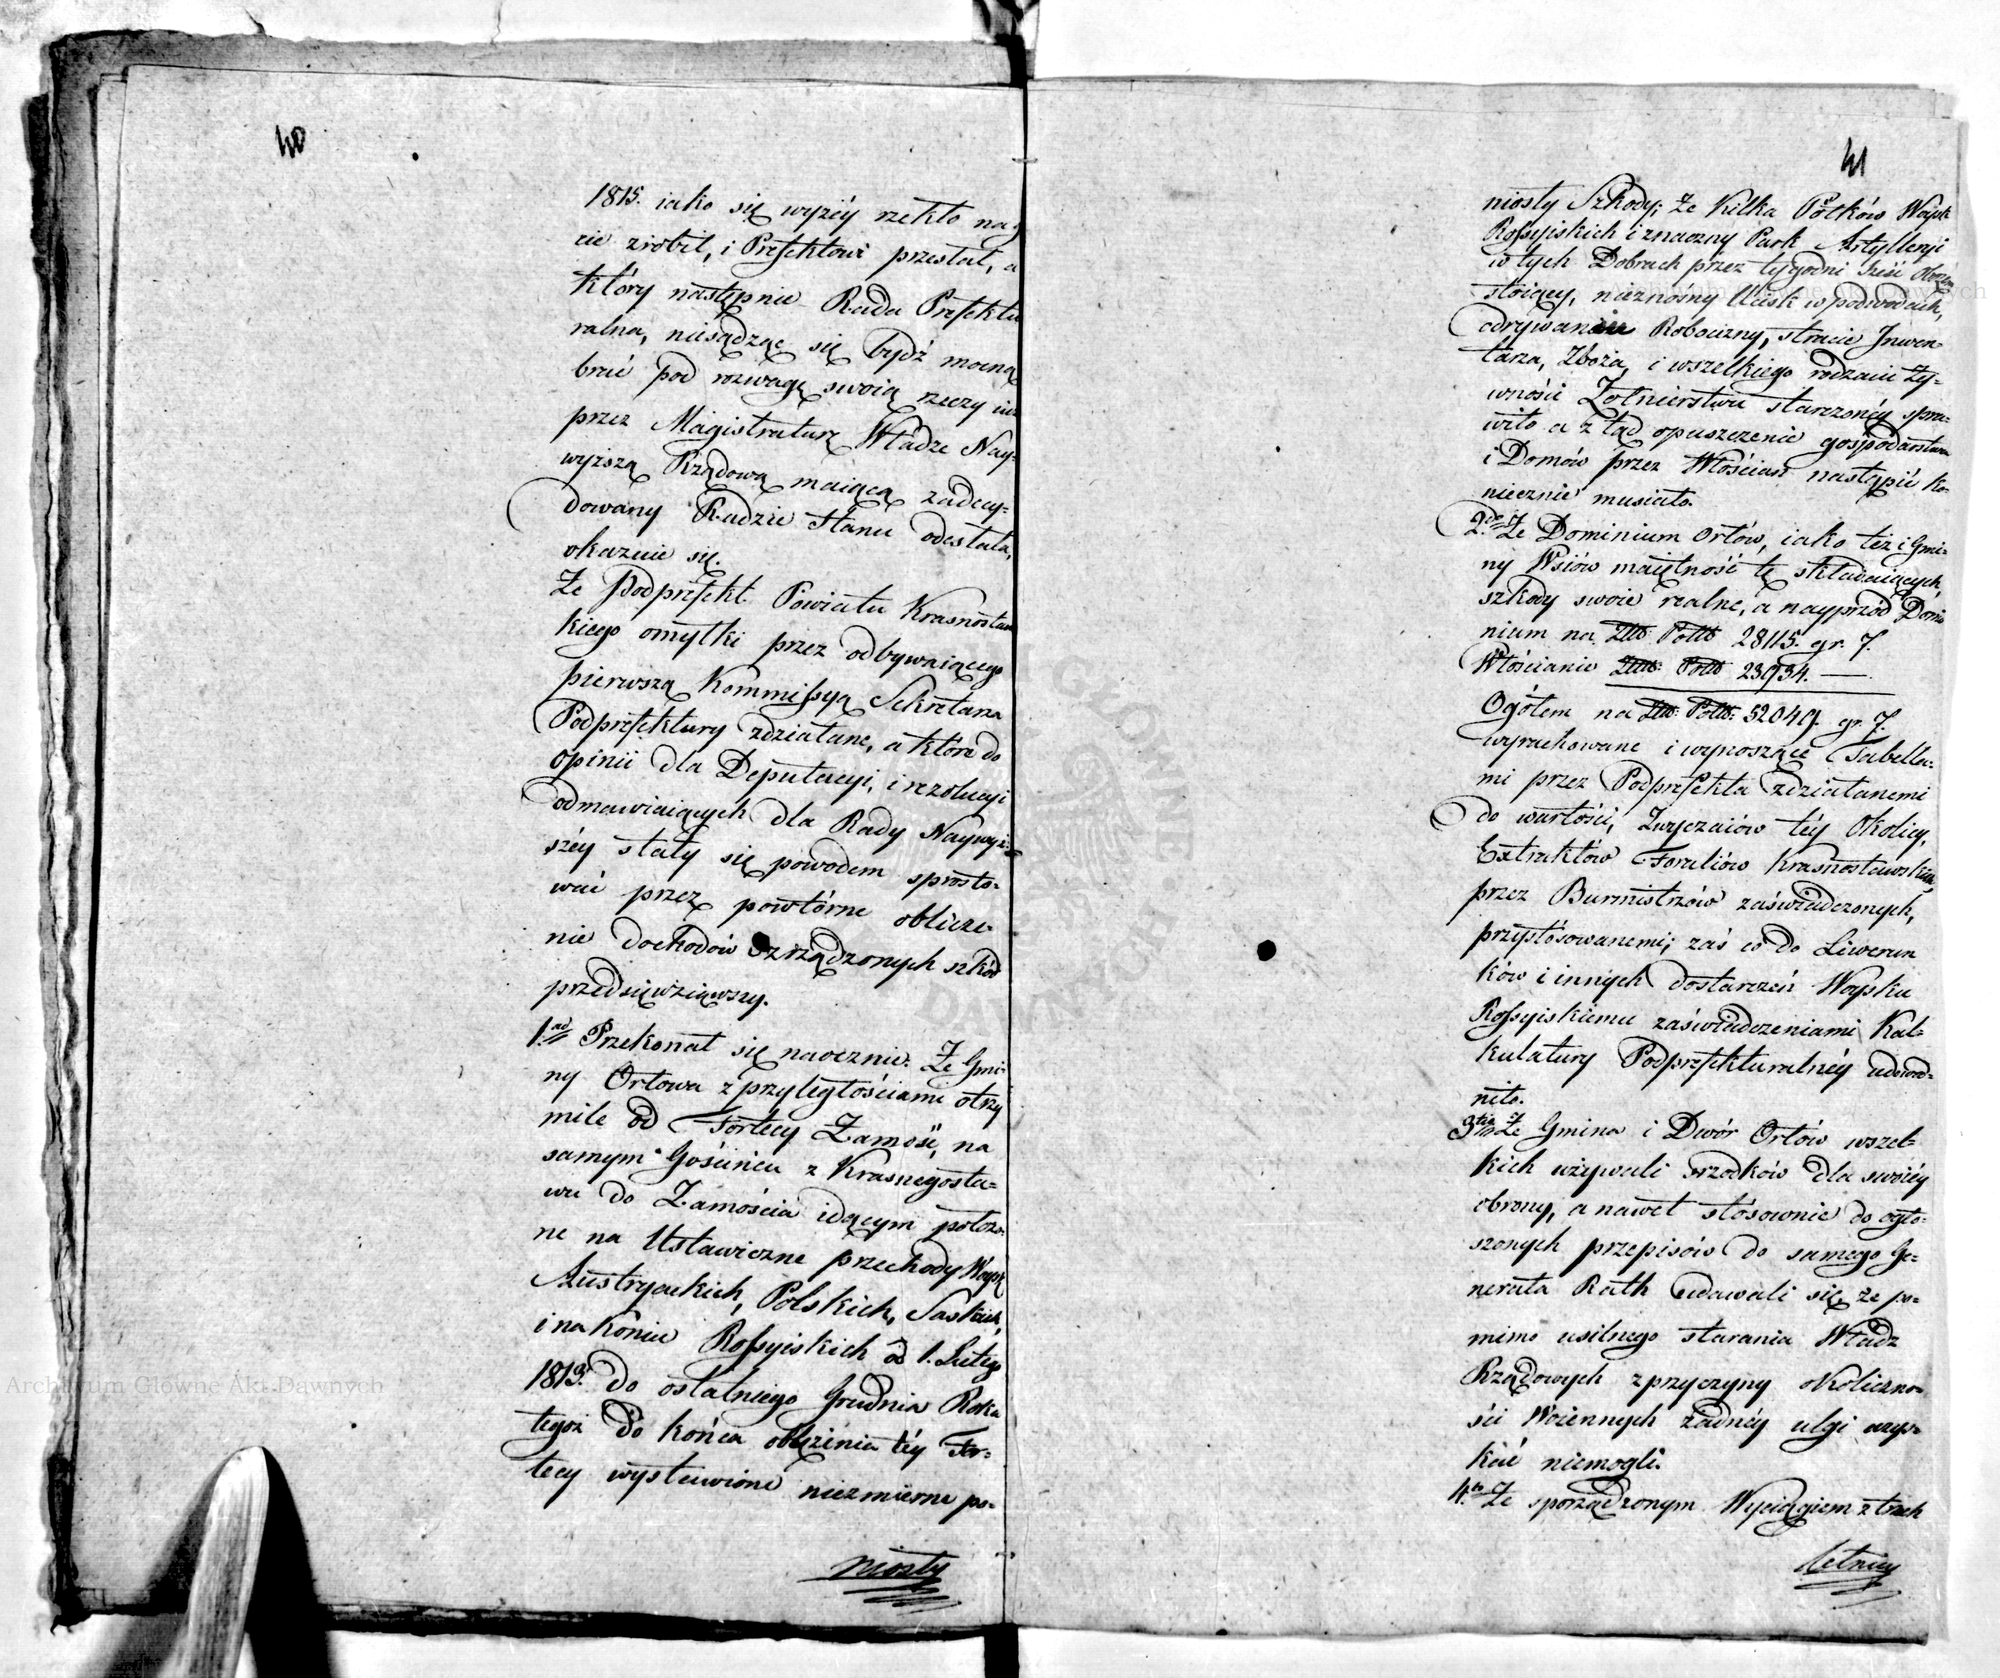 40
1815. iako się wyzéy rzekło na g
cie zrobił, i Prefektowi przesłał, a
który następnie Rada Prefektu
ralna, niesądząc się bydź mocną
brać pod rozwagę swoią rzeczy iuż
przez Magistraturę Władzę Nay-
wyższą Rządową maiącą zadecy-
dowany Radzie Stanu odesłała,
okazuie się.
Że Podprefekt Powiatu Krasnostaw
kiego omyłki przez odbywaiącego
pierwszą Kommissyą Sekretarza
Podprefektury zdziałane, a które do
opinii dla Deputacyi, i rezolucyi
odmawiaiących dla Rady Naywyż-
széy stały się powodem sprosto-
wać przez powtórne oblicze-
nie dochodów zrządzonych szkód
przedsięwziąwszy.
1.ad Przekonał się naocznie. Że Gmi-
ny Orłowa z przyległościami o trzy
mile od Fortecy Zamość, na
samym Gościńcu z Krasnegosta-
wu do Zamościa idącym położo-
ne na Ustawiczne przechody Woysk
Austryackich, Polskich, Saskich,
i na końcu Rossyiskich od 1. Lutego
1813. do ostatniego Grudnia Roku
tegoż do końca oblężenia téy For-
tecy wystawione niezmierne po-
niosły
41
niosły Szkody; że kilka Pułków Woysk
Rossyiskich i znaczny Park Artylleryi
w tych Dobrach przez tygodni sześć Obozem
stoiący, nieznośny Ucisk w podwodach,
odrywanie Robocizny, stracie Inwen-
tarza, Zboża, i wszelkiego rodzaiu ży-
wności Żołnierstwu starczonéy spra-
wiło a z tąd opuszczenie gospodarstwa
i Domów przez Włościan nastąpić ko-
niecznie musiało.
2.do Że Dominium Orłów, iako też i Gmi-
ny Wsiów maiętność tę składaiących,
szkody swoie realne, a nayprzód Domi
nium na Złt: Polł: 28115. gr. 7.
Włościanie Złt: Polł: 23934. —
Ogółem na Złt: Polł: 52049. gr. 7.
wyrachowane i wynoszące Tabella-
mi przez Podprefekta zdziałanemi
do wartości, Zwyczaiów téy Okolicy,
Extraktów Foraliów Krasnostawskich
przez Burmistrzów zaświadczonych,
przystosowanemi; zaś co do Liwerun
ków i innych dostarczeń Woysku
Rossyiskiemu zaświadczeniami Kal-
kulatury Podprefekturalnéy udowod-
niło.
3tio Że Gmina i Dwór Orłów wszel-
kich używali srzodków dla swoiéy
obrony, a nawet stósownie do ogło-
szonych przepisów do samego Ge-
nerała Rath udawali się, że po-
mimo usilnego starania Władz
Rządowych z przyczyny okoliczno-
ści Woiennych żadnéy ulgi uzys-
kać niemogli.
4.to Że sporządzonym Wyciągiem z trzech
letniey